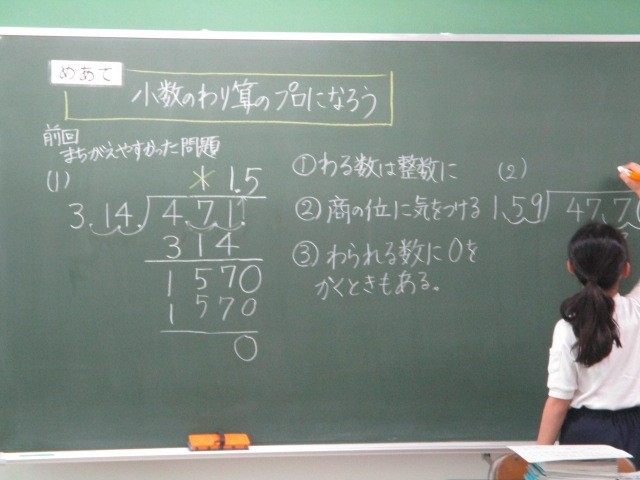 めあて
小数のわり算のプロになろう
前回
まちがえやすかった問題
(1)
1.5
3.14. 4.71.
314
1570
1570
0
①わる数は整数に
②商の位に気をつける
③わられる数に0を
かくときもある。
(2)
1.59 47.70